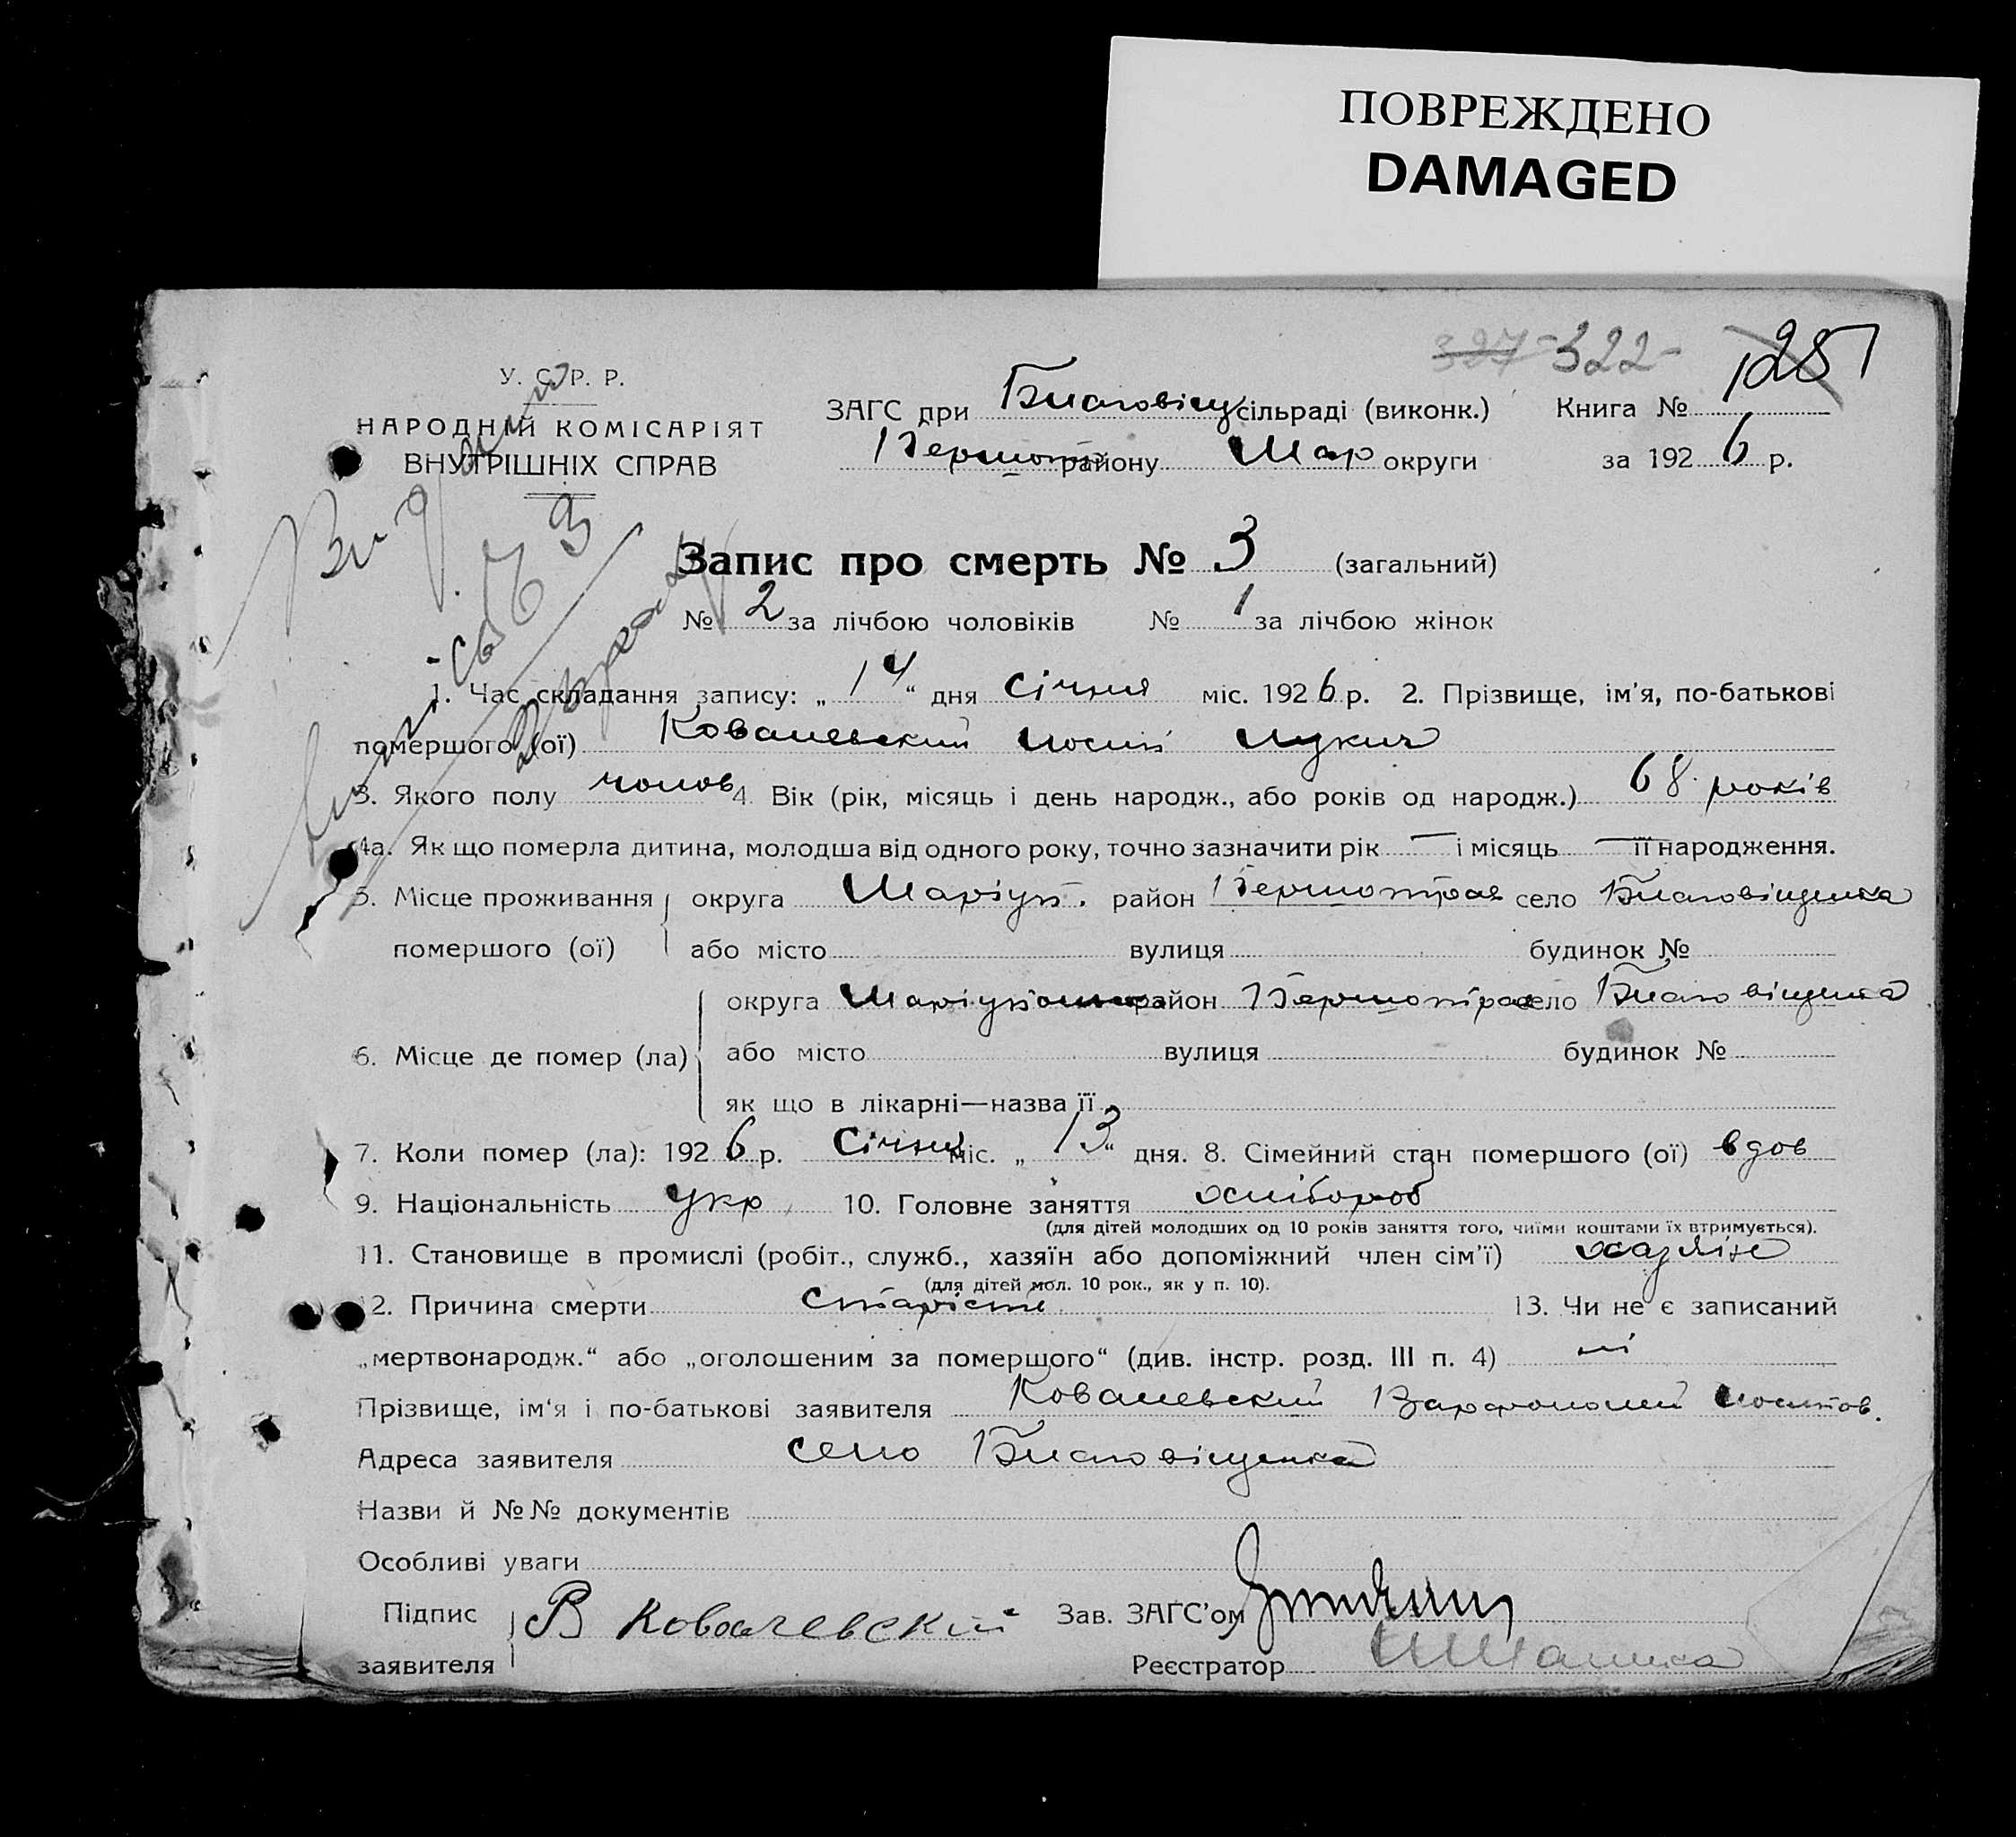 ПОВРЕЖДЕНО
DAMAGED
327 - 322 -
1281
У. С. Р. Р.
НАРОДНІЙ КОМІСАРІЯТ
ВНУТРІШНІХ СПРАВ
ЗАГС при Благовіщ сільраді (виконк.) Книга №
району Мар округи за 1926 р.
Запис про смерть № 3 (загальний)
№ 2 за лічбою чоловіків № 1 за лічбою жінок
1. Час складання запису: „14“ дня січня міс. 1926 р. 2. Прізвище, ім'я, по-батькові
помершого (ої) Ковалевский Йосип Лукич
3. Якого полу чолов 4. Вік (рік, місяць і день народж., або років од народж.) 68 років
4а. Як що померла дитина, молодша від одного року, точно зазначити рік — і місяць — її народження.
5. Місце проживання округа Маріуп. район село Благовіщенка
помершого (ої) або місто вулиця будинок №
округа район село Благовіщенка
6. Місце де помер (ла) або місто вулиця будинок №
як що в лікарні—назва її
7. Коли помер (ла): 1926 р. Січня міс. „13“ дня. 8. Сімейний стан помершого (ої) вдов
9. Національність укр 10. Головне заняття хлібороб
(для дітей молодших од 10 років заняття того, чиїми коштами їх втримується).
11. Становище в промислі (робіт., служб., хазяїн або допоміжний член сім'ї) хазяїн
(для дітей мол. 10 рок., як у п. 10).
12. Причина смерти старість 13. Чи не є записаний
„мертвонародж.“ або „оголошеним за померщого“ (див. інстр. розд. III п. 4) ні
Прізвище, ім'я і по-батькові заявителя Ковалевский Варфоломей Йосипов.
Адреса заявителя село Благовіщенка
Назви й №№ документів
Особливі уваги
Підпис В Ковалевский Зав. ЗАГС'ом
заявителя Реєстратор